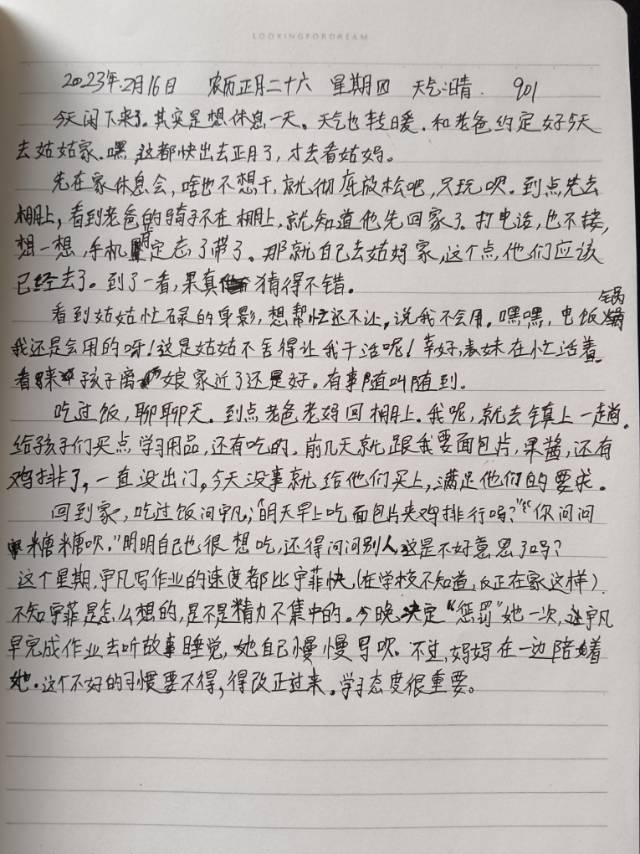 LOOKINGFORDREAM
2023年2月16日 农历正月二十六 星期四 天气:晴. 901
今天闲下来了。其实是想休息一天。天气也转暖。和老爸约定好今天
去姑姑家。嘿,这都快出去正月了,才去看姑妈。
先在家休息会,啥也不想干,就彻底放松吧,只玩呗。到点先去
棚上,看到老爸的骑子不在棚上,就知道他先回家了。打电话,也不接,
想一想,手机肯定忘了带了。那就自己去姑妈家,这个点,他们应该
已经去了。到了一看,果真猜得不错。
看到姑姑忙碌的身影,想帮忙还不让,说我不会用。嘿嘿,电饭锅
我还是会用的呀!这是姑姑不舍得让我干活呢!幸好,表妹在忙活着。
看来孩子离娘家近了还是好。有事随叫随到。
吃过饭,聊聊天。到点老爸老妈回棚上。我呢,就去镇上一趟。
给孩子们买点学习用品,还有吃的。前几天就跟我要面包片,果酱,还有
鸡排了,一直没出门。今天没事就给他们买上,满足他们的要求。
回到家,吃过饭问宇凡,“明天早上吃面包片夹鸡排行吗?”“你问问
糖糖呗。”明明自己也很想吃,还得问问别人,这是不好意思了吗?
这个星期,宇凡写作业的速度都比宇菲快,(在学校不知道,反正在家这样).
不知宇菲是怎么想的,是不是精力不集中的。今晚决定“惩罚”她一次,让宇凡
早完成作业去听故事睡觉,她自己慢慢写呗。不过,妈妈在一边陪着
她。这个不好的习惯要不得,得改正过来。学习态度很重要。